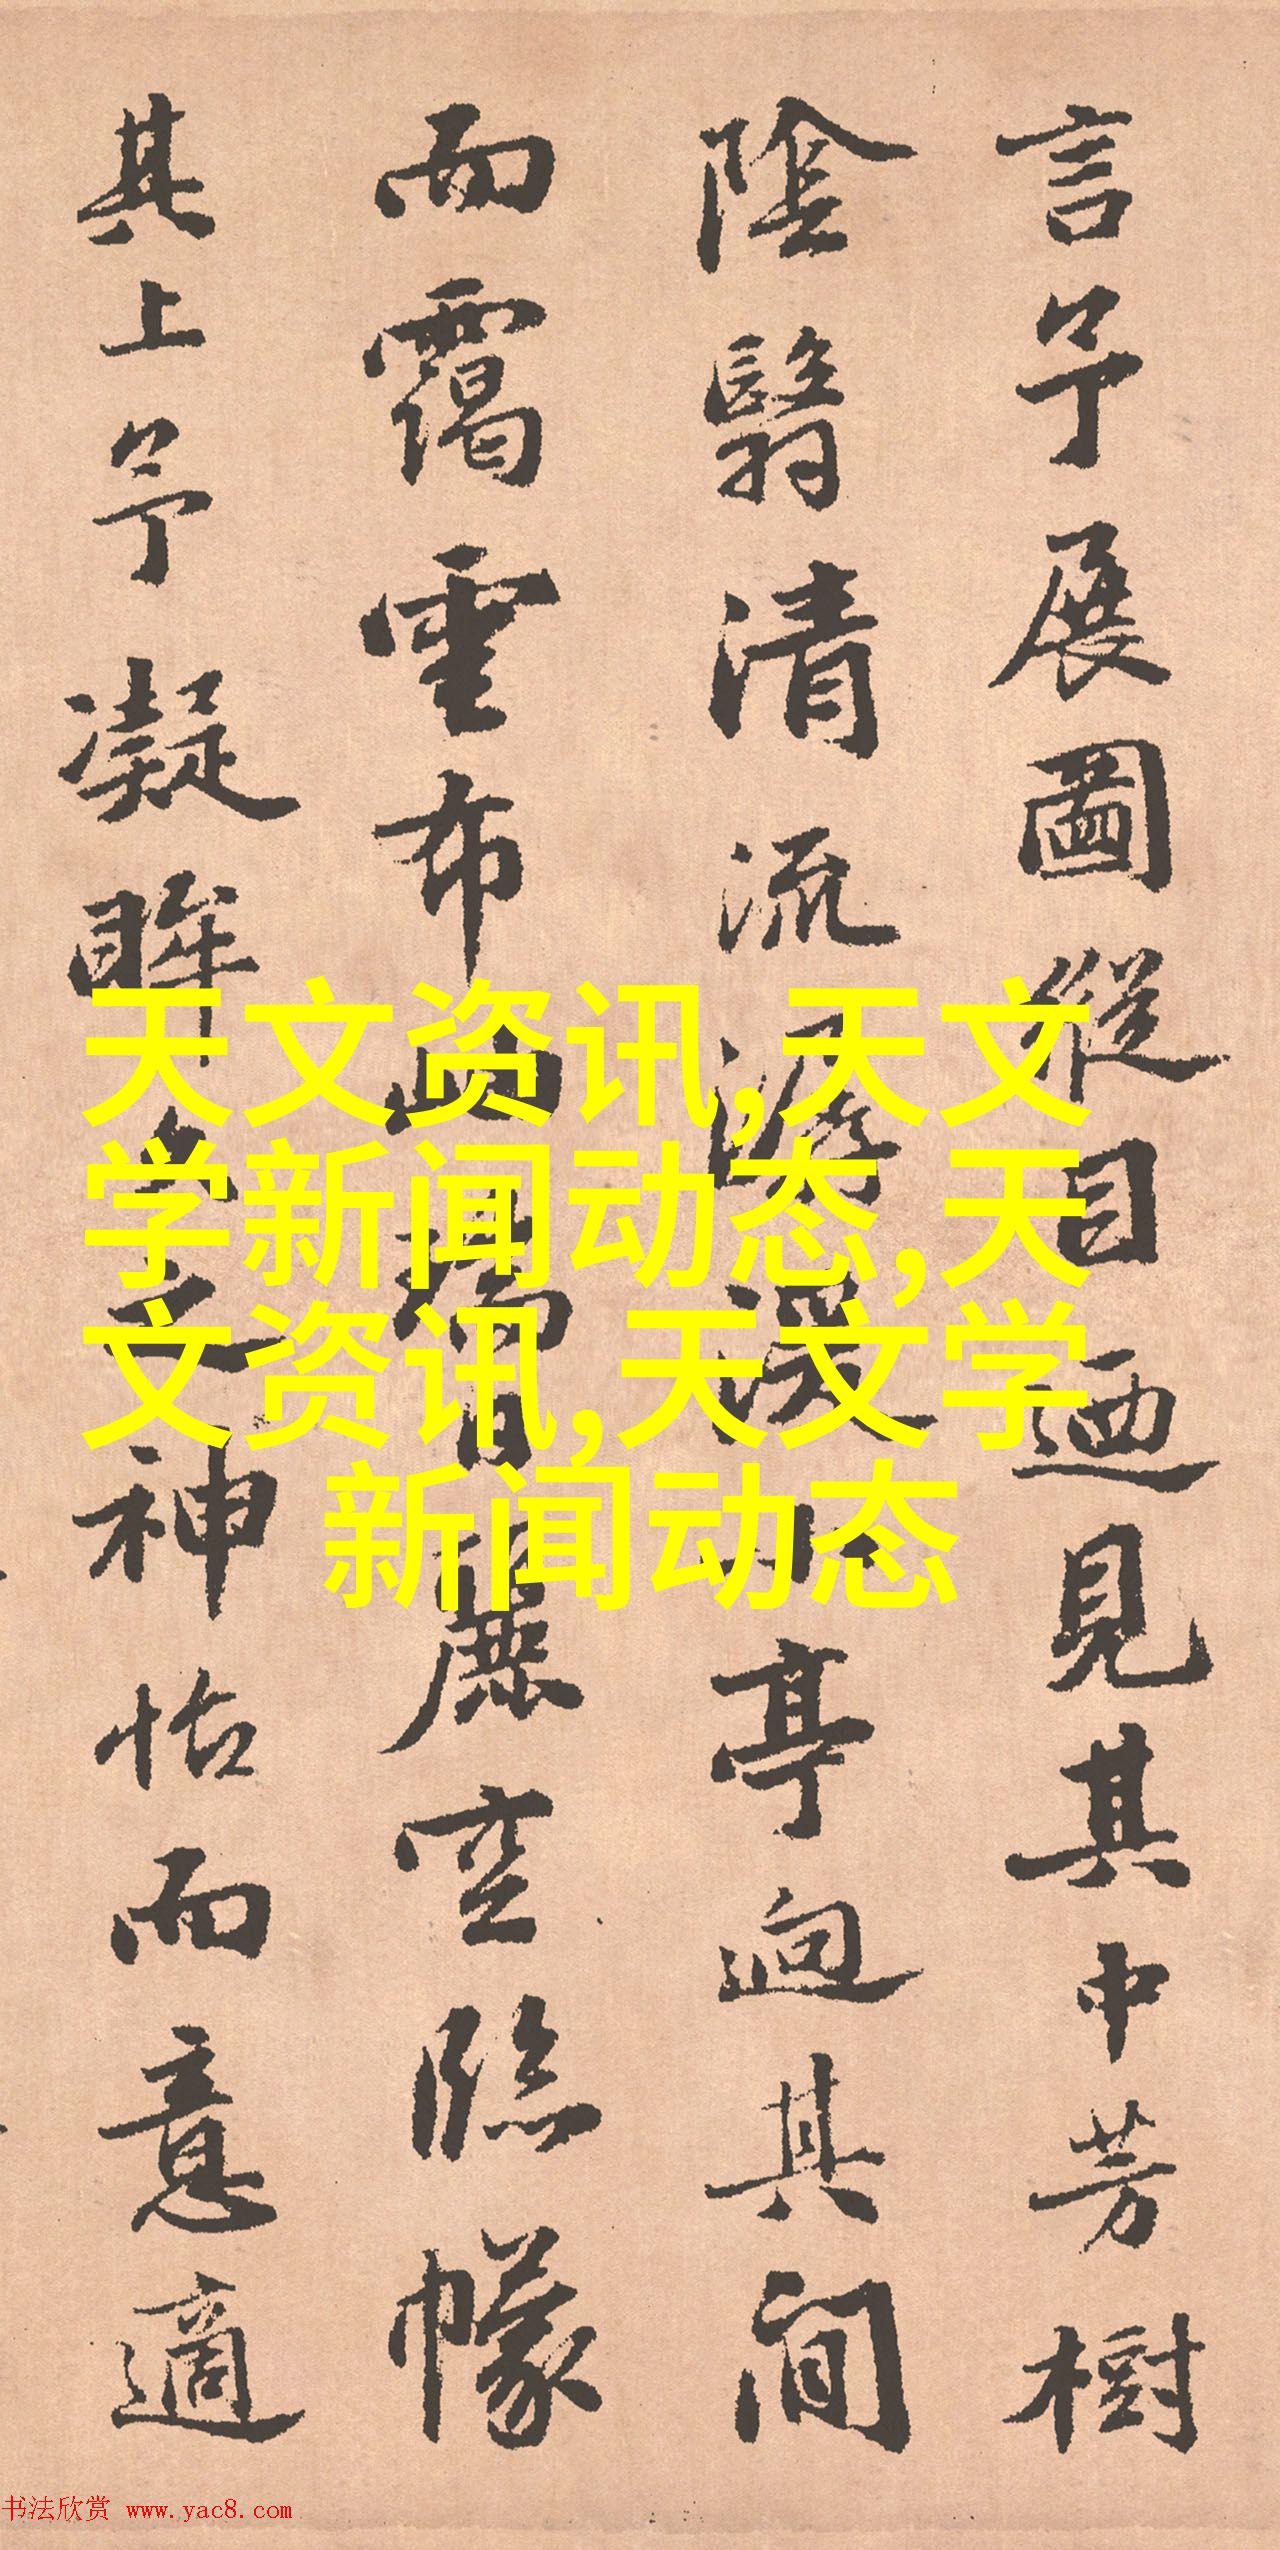 言予展圖縱目迺見其中芳樹
陰翳清流漫小亭迥其間
而靄雲布山瑞日麗空臨幪
其上予凝眸久之神怡而意適
天文资讯,天文
学新闻动态,天
文资讯,天文学
新闻动态
书法欣赏 www.yac8.com